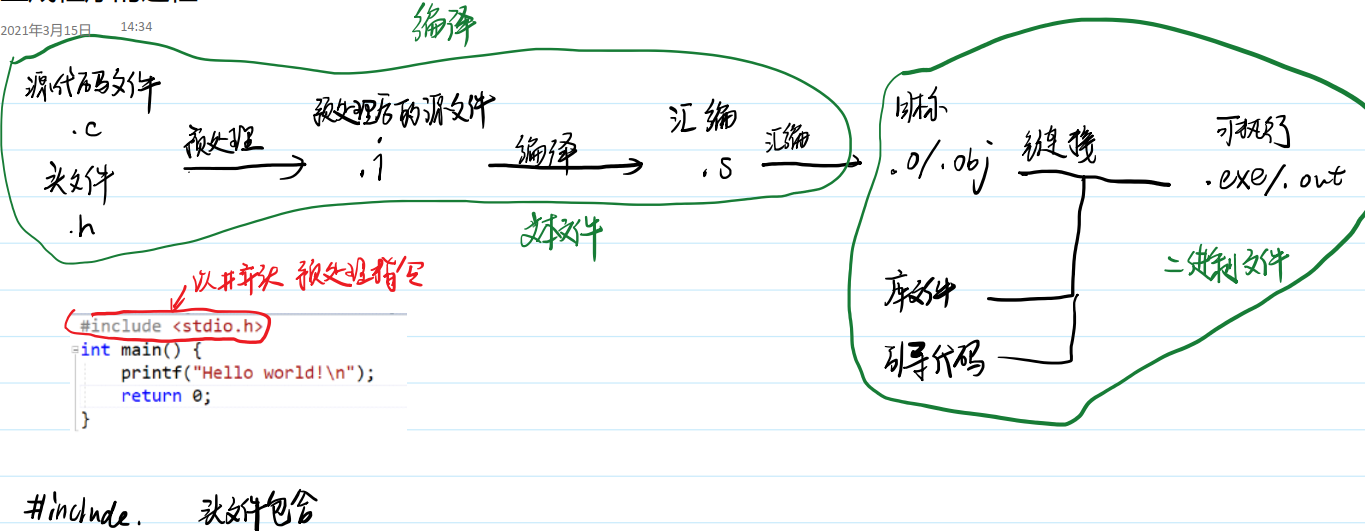 2021年3月15日 14:34
编译
源代码文件
.c
头文件
.h
预处理
预处理后的源文件
.i
编译
汇编
.s
汇编
文本文件
目标
.o/.obj
链接
可执行
.exe/.out
库文件
引导代码
二进制文件
以#开头 预处理指令
#include <stdio.h>
int main() {
printf("Hello world!\n");
return 0;
}
#include. 头文件包含